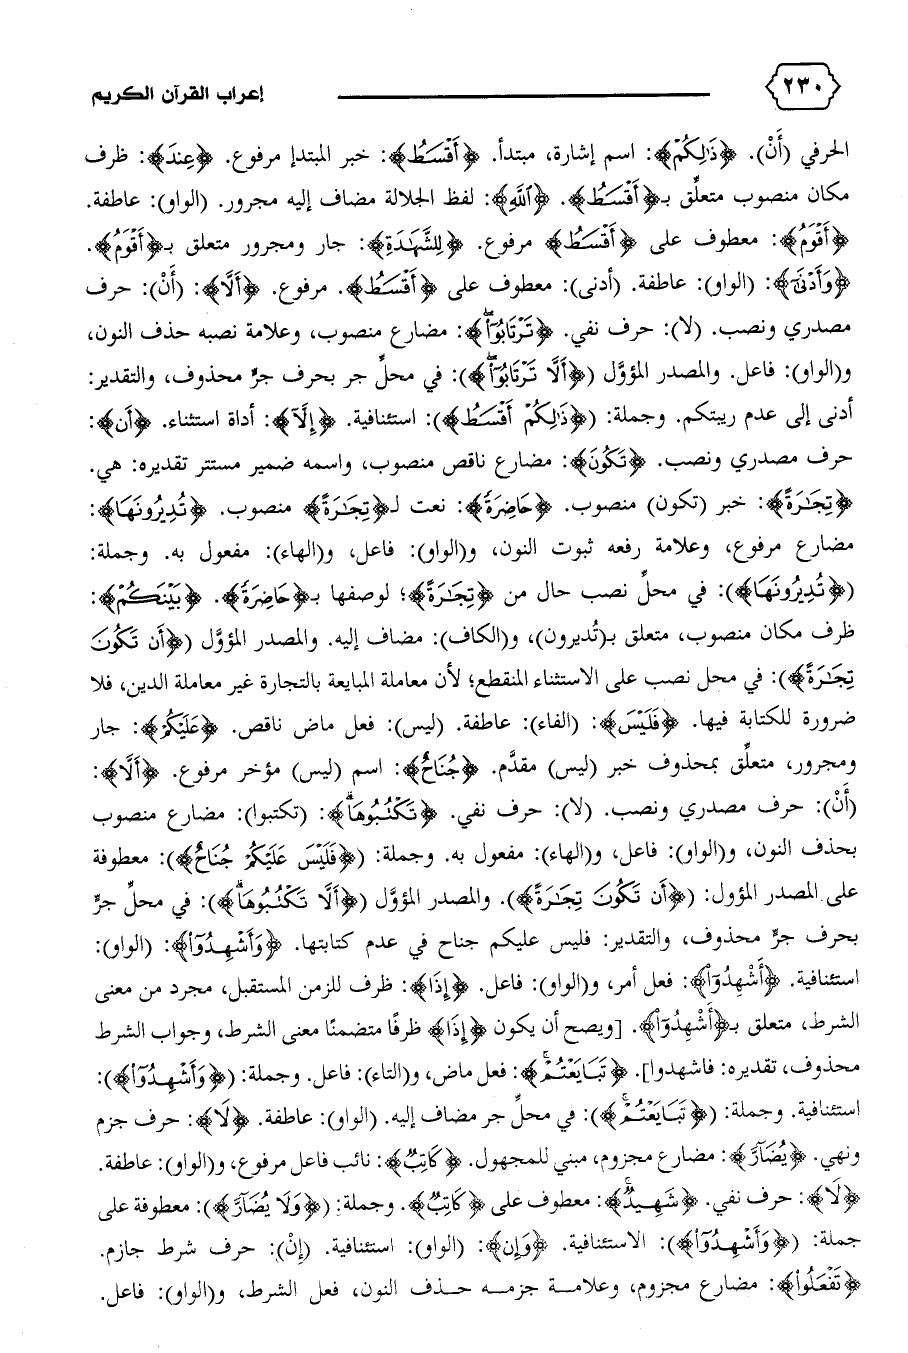 ٢٣٠ إعراب القرآن الكريم
الحرفي (أَنْ). ﴿ذَٰلِكُمْ﴾: اسم إشارة، مبتدأ. ﴿أَقْسَطُ﴾: خبر المبتدإ مرفوع. ﴿عِندَ﴾: ظرف
مكان منصوب متعلِّق بـ﴿أَقْسَطُ﴾. ﴿ٱللَّهِ﴾: لفظ الجلالة مضاف إليه مجرور. (الواو): عاطفة.
﴿أَقْوَمُ﴾: معطوف على ﴿أَقْسَطُ﴾ مرفوع. ﴿لِلشَّهَٰدَةِ﴾: جار ومجرور متعلق بـ﴿أَقْوَمُ﴾.
﴿وَأَدْنَىٰٓ﴾: (الواو): عاطفة. (أدنى): معطوف على ﴿أَقْسَطُ﴾. مرفوع. ﴿أَلَّا﴾: (أَنْ): حرف
مصدري ونصب. (لا): حرف نفي. ﴿تَرْتَابُوٓا۟ۖ﴾: مضارع منصوب، وعلامة نصبه حذف النون،
و(الواو): فاعل. والمصدر المؤوَّل (﴿أَلَّا تَرْتَابُوٓا۟ۖ﴾): في محلِّ جر بحرف جرٍّ محذوف، والتقدير:
أدنى إلى عدم ريبتكم. وجملة: (﴿ذَٰلِكُمْ أَقْسَطُ﴾): استئنافية. ﴿إِلَّآ﴾: أداة استثناء. ﴿أَن﴾:
حرف مصدري ونصب. ﴿تَكُونَ﴾: مضارع ناقص منصوب، واسمه ضمير مستتر تقديره: هي.
﴿تِجَٰرَةً﴾: خبر (تكون) منصوب. ﴿حَاضِرَةً﴾: نعت لـ﴿تِجَٰرَةً﴾ منصوب. ﴿تُدِيرُونَهَا﴾:
مضارع مرفوع، وعلامة رفعه ثبوت النون، و(الواو): فاعل، و(الهاء): مفعول به. وجملة:
(﴿تُدِيرُونَهَا﴾): في محلِّ نصب حال من ﴿تِجَٰرَةً﴾؛ لوصفها بـ﴿حَاضِرَةً﴾. ﴿بَيْنَكُمْ﴾:
ظرف مكان منصوب، متعلق بـ(تُديرون)، و(الكاف): مضاف إليه. والمصدر المؤوَّل (﴿أَن تَكُونَ
تِجَٰرَةً﴾): في محل نصب على الاستثناء المنقطع؛ لأن معاملة المبايعة بالتجارة غير معاملة الدين، فلا
ضرورة للكتابة فيها. ﴿فَلَيْسَ﴾: (الفاء): عاطفة. (ليس): فعل ماض ناقص. ﴿عَلَيْكُمْ﴾: جار
ومجرور، متعلِّق بمحذوف خبر (ليس) مقدَّم. ﴿جُنَاحٌ﴾: اسم (ليس) مؤخر مرفوع. ﴿أَلَّا﴾:
(أَنْ): حرف مصدري ونصب. (لا): حرف نفي. ﴿تَكْتُبُوهَاۗ﴾: (تكتبوا): مضارع منصوب
بحذف النون، و(الواو): فاعل، و(الهاء): مفعول به. وجملة: (﴿فَلَيْسَ عَلَيْكُمْ جُنَاحٌ﴾): معطوفة
على المصدر المؤول: (﴿أَن تَكُونَ تِجَٰرَةً﴾). والمصدر المؤوَّل (﴿أَلَّا تَكْتُبُوهَاۗ﴾): في محلِّ جرٍّ
بحرف جرٍّ محذوف، والتقدير: فليس عليكم جناح في عدم كتابتها. ﴿وَأَشْهِدُوٓا۟﴾: (الواو):
استئنافية. ﴿أَشْهِدُوٓا۟﴾: فعل أمر، و(الواو): فاعل. ﴿إِذَا﴾: ظرف للزمن المستقبل، مجرد من معنى
الشرط، متعلق بـ﴿أَشْهِدُوٓا۟﴾. [ويصح أن يكون ﴿إِذَا﴾ ظرفًا متضمنًا معنى الشرط، وجواب الشرط
محذوف، تقديره: فاشهدوا]. ﴿تَبَايَعْتُمْۚ﴾: فعل ماض، و(التاء): فاعل. وجملة: (﴿وَأَشْهِدُوٓا۟﴾):
استئنافية. وجملة: (﴿تَبَايَعْتُمْۚ﴾): في محلِّ جر مضاف إليه. (الواو): عاطفة. ﴿لَا﴾: حرف جزم
ونهي. ﴿يُضَآرَّ﴾: مضارع مجزوم، مبني للمجهول. ﴿كَاتِبٌ﴾: نائب فاعل مرفوع، و(الواو): عاطفة.
﴿لَا﴾: حرف نفي. ﴿شَهِيدٌۚ﴾: معطوف على ﴿كَاتِبٌ﴾. وجملة: (﴿وَلَا يُضَآرَّ﴾): معطوفة على
جملة: (﴿وَأَشْهِدُوٓا۟﴾): الاستئنافية. ﴿وَإِن﴾: (الواو): استئنافية. (إِنْ): حرف شرط جازم.
﴿تَفْعَلُوا۟﴾: مضارع مجزوم، وعلامة جزمه حذف النون، فعل الشرط، و(الواو): فاعل.